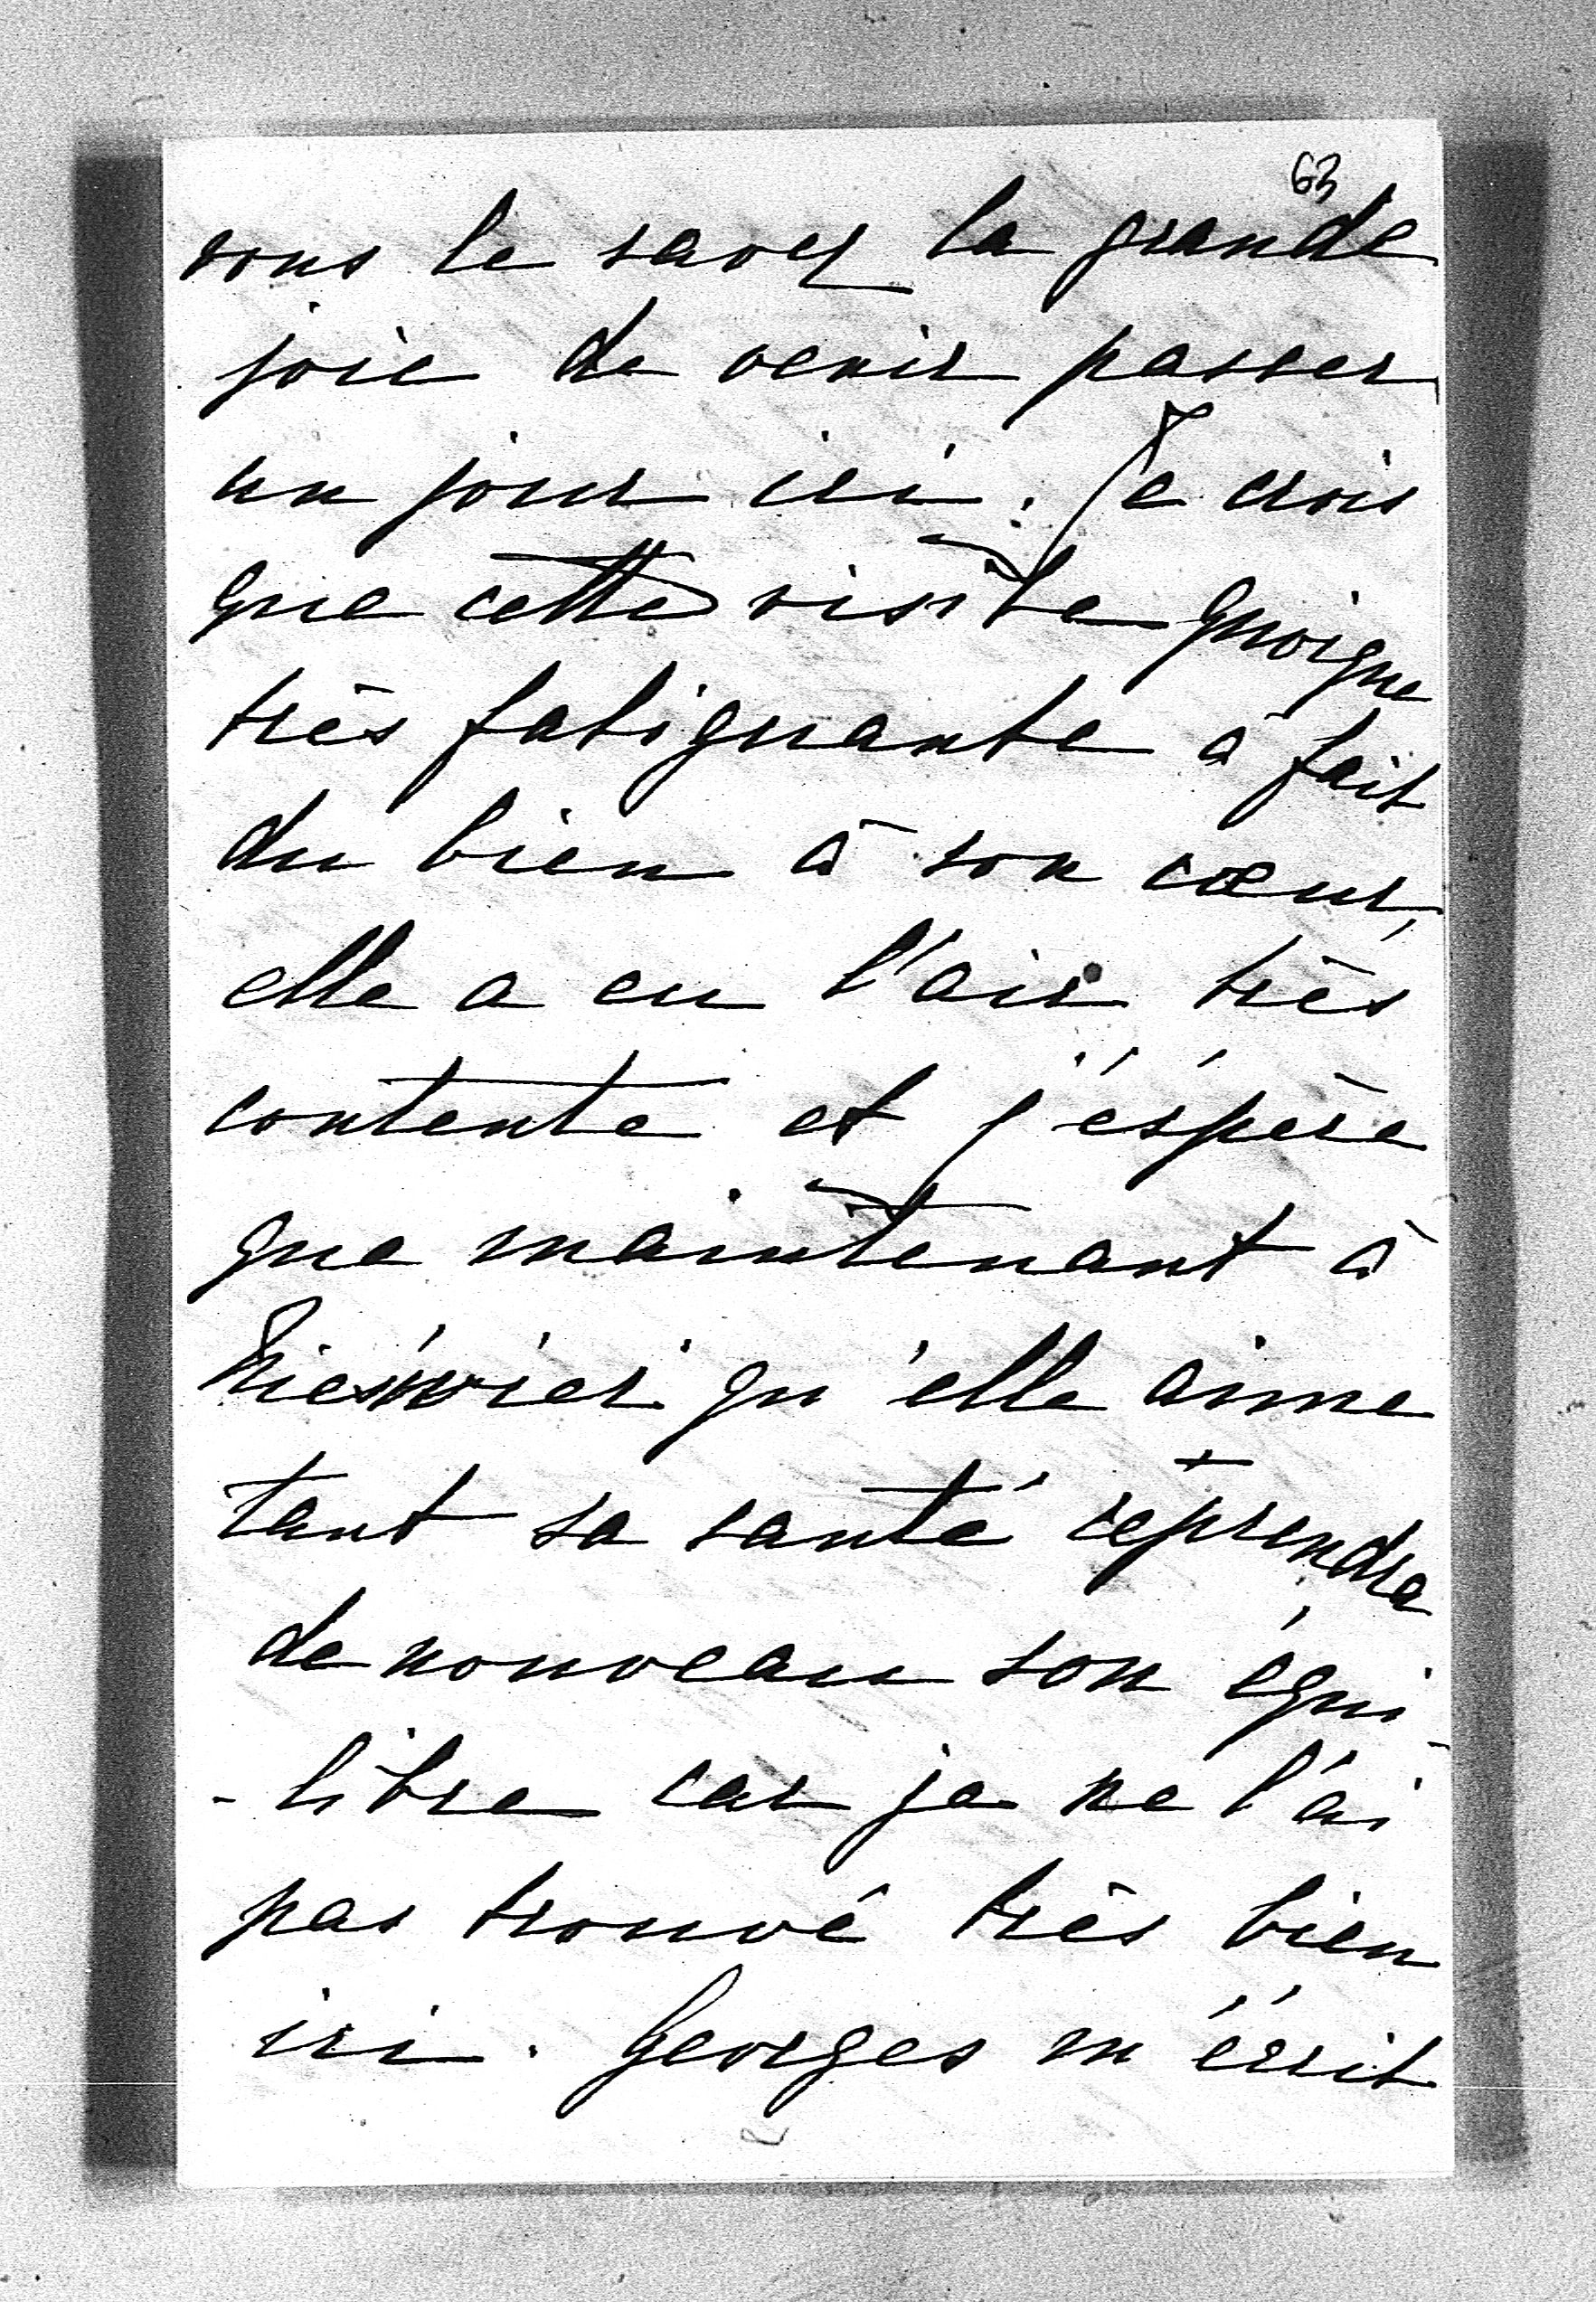 63
vous le savez la grande
joie de venir passer
un jour ici. Je crois
que cette visite quoique
très fatiguante a fait
du bien à son cœur,
elle a eu l'air très
contente et j'éspère
que maintenant à
Nieświez qu'elle aime
tant sa santé reprendra
de nouveau son équi-
-libre car je ne l'ai
pas trouvé très bien
ici. Georges m'écrit